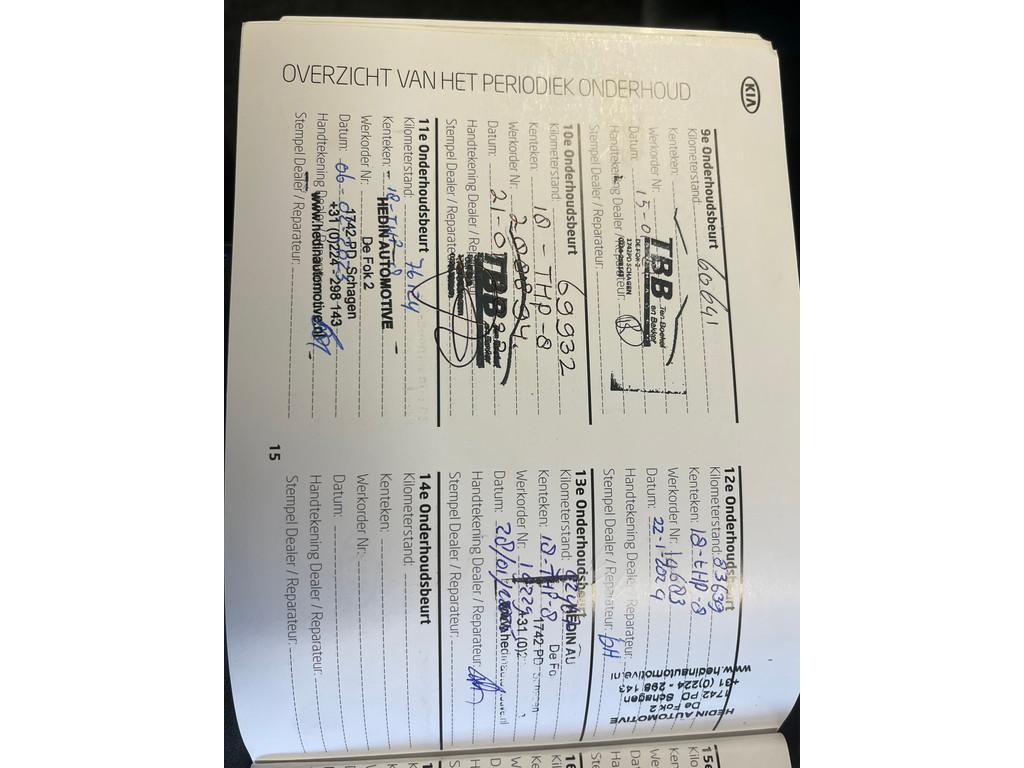 KIA
OVERZICHT VAN HET PERIODIEK ONDERHOUD
9e Onderhoudsbeurt
Kilometerstand: 60641
Kenteken:
Werkorder Nr.:
Datum: 15-0
Handtekening Dealer / Reparateur:
Stempel Dealer / Reparateur:
TBB Ten Boekel en Bakker
DE FOK 2
1742PD SCHAGEN
10e Onderhoudsbeurt
Kilometerstand: 69932
Kenteken: 18-THP-8
Werkorder Nr:
Datum: 21-0
Handtekening Dealer / Reparateur:
Stempel Dealer / Reparateur:
TBB
11e Onderhoudsbeurt
Kilometerstand: 76124
Kenteken: 18-THP-8
Werkorder Nr:
Datum: 06-
Handtekening Dealer / Reparateur:
Stempel Dealer / Reparateur:
HEDIN AUTOMOTIVE
De Fok 2
1742 PD Schagen
+31 (0)224 - 298 143
www.hedinautomotive.nl
12e Onderhoudsbeurt
Kilometerstand: 83639
Kenteken: 18-tHP-8
Werkorder Nr:
Datum: 22-1-2024
Handtekening Dealer / Reparateur:
Stempel Dealer / Reparateur:
HEDIN AUTOMOTIVE
De Fok 2
1742 PD Schagen
+31 (0)224 - 298 143
www.hedinautomotive.nl
13e Onderhoudsbeurt
Kilometerstand:
Kenteken: 18-THP-8
Werkorder Nr:
Datum: 28/01/
Handtekening Dealer / Reparateur:
Stempel Dealer / Reparateur:
HEDIN AU
De Fo
1742 PD
+31 (0)2
14e Onderhoudsbeurt
Kilometerstand:
Kenteken:
Werkorder Nr:
Datum:
Handtekening Dealer / Reparateur:
Stempel Dealer / Reparateur:
15
15e
Kilo
Kent
Werk
Dat
Han
Ste
16